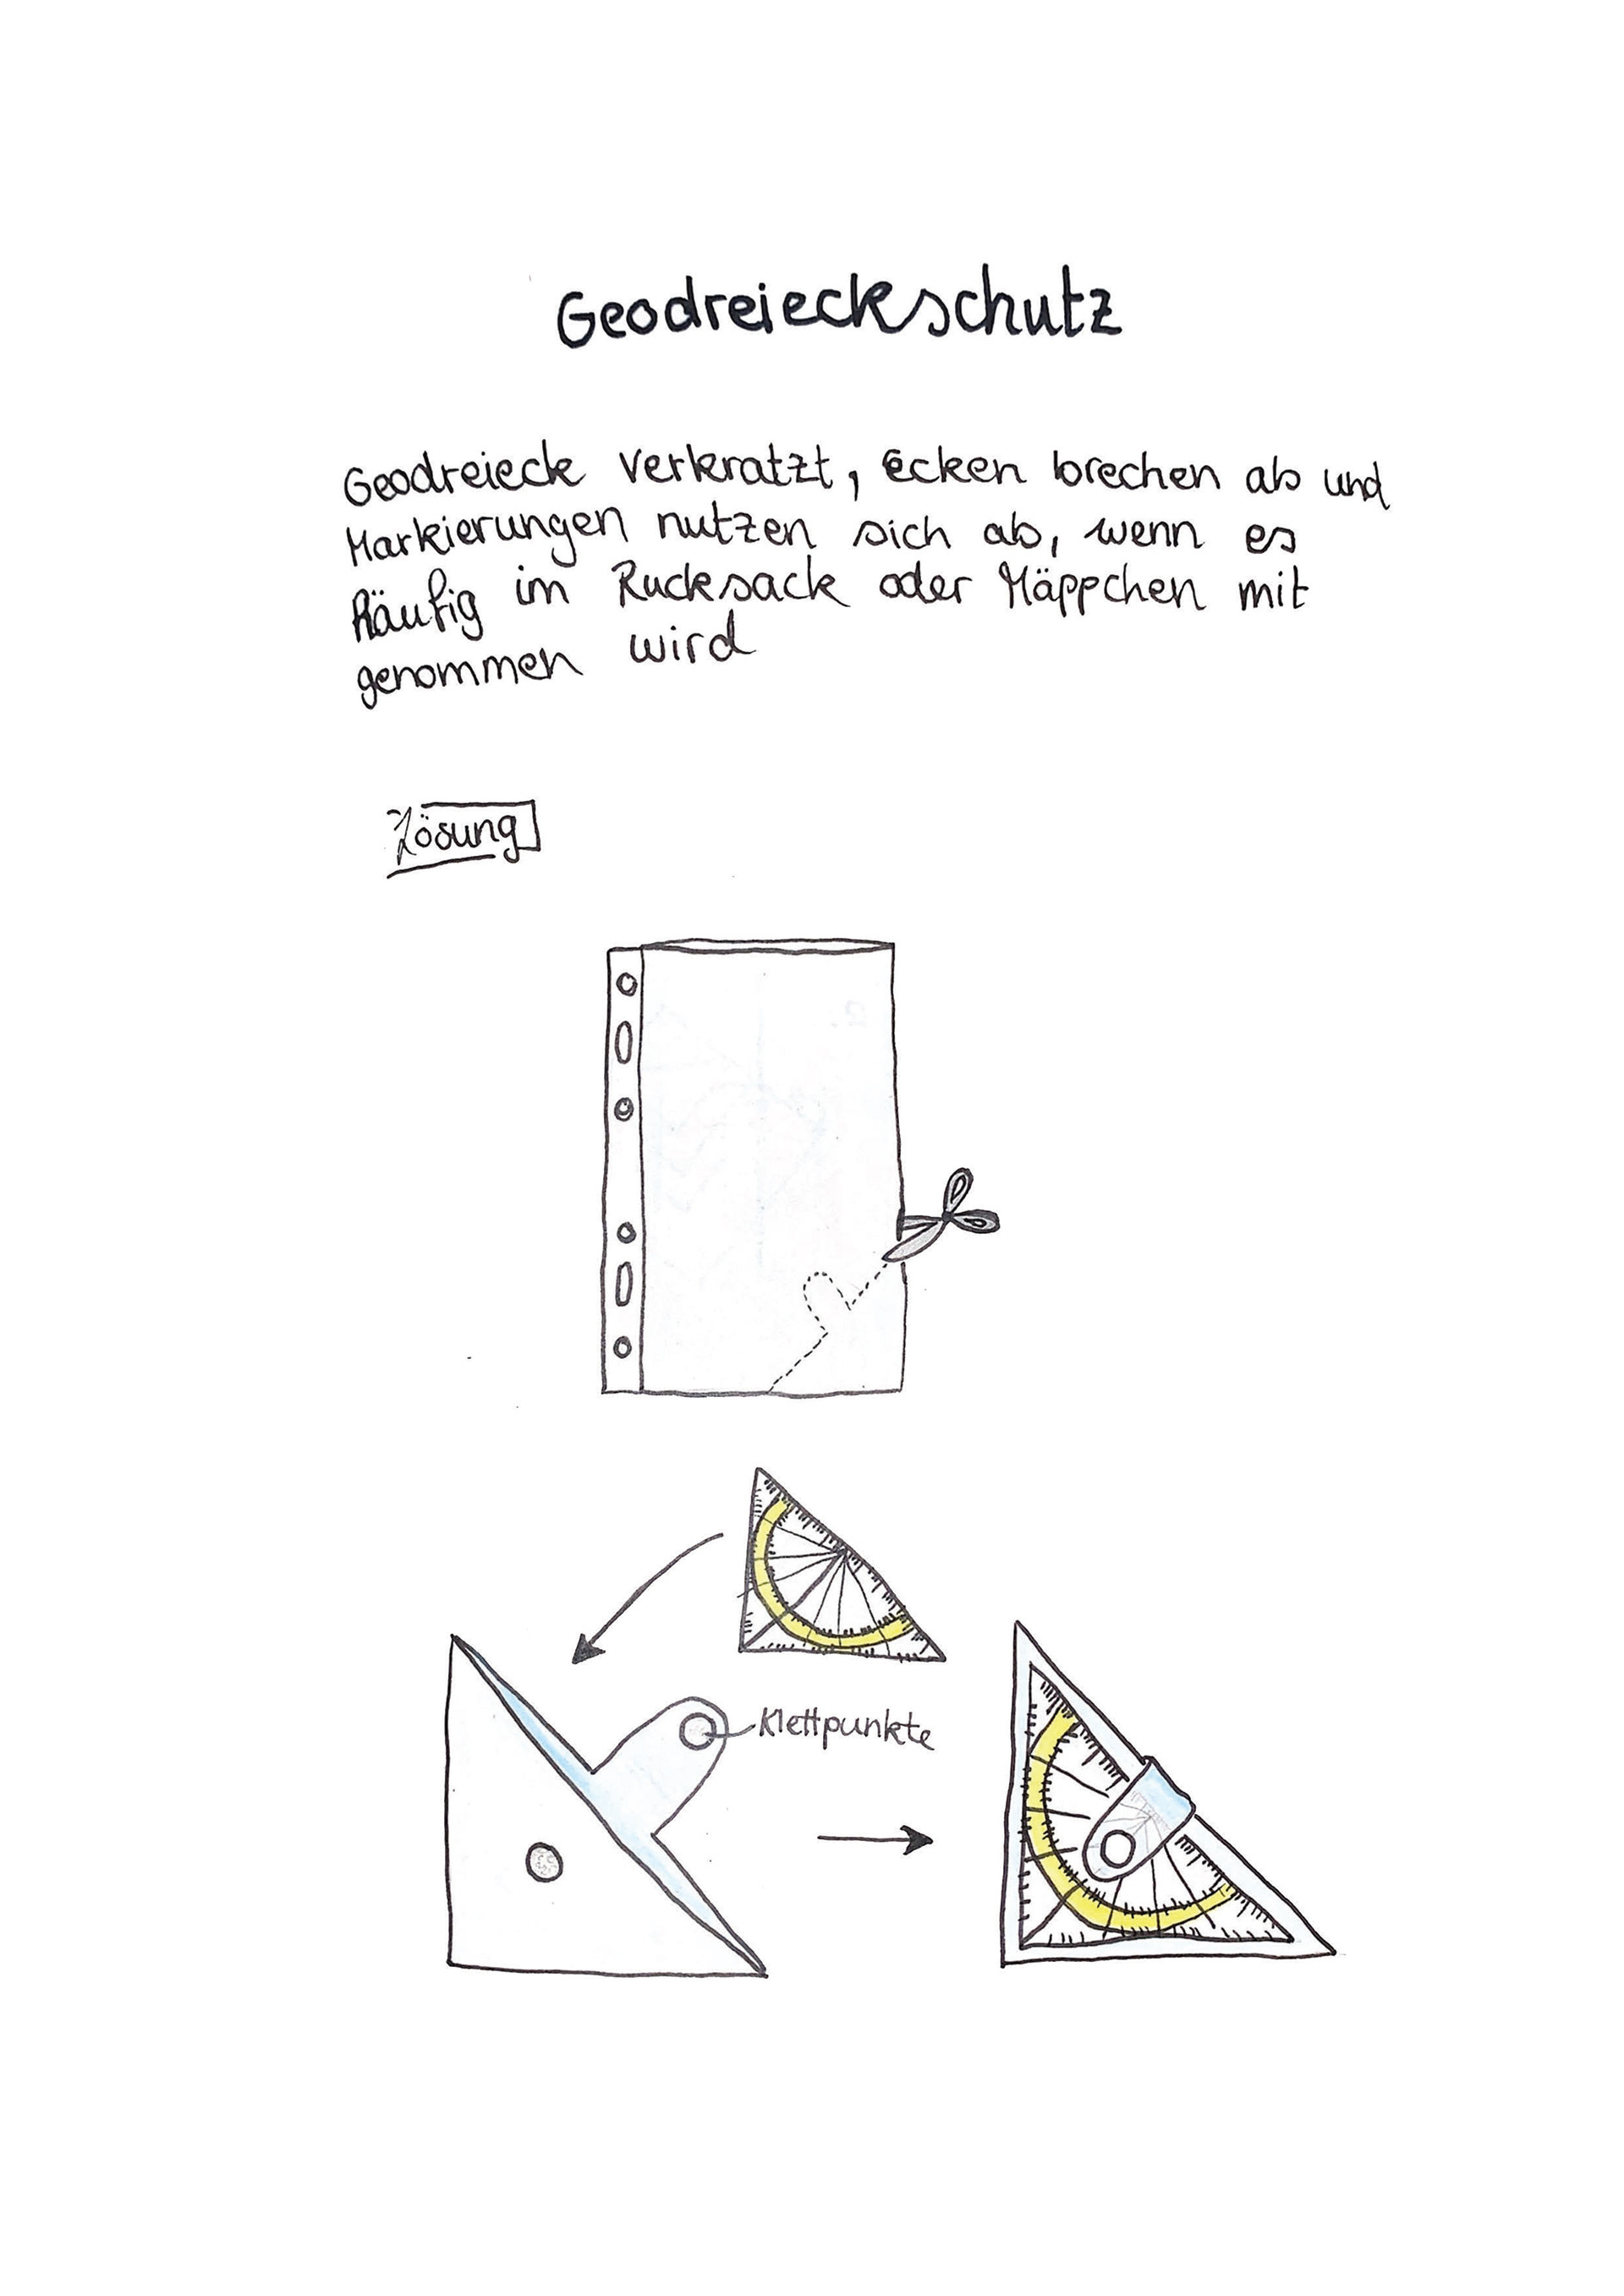 Geodreieckschutz
Geodreieck verkratzt, ecken brechen ab und
Markierungen nutzen sich ab, wenn es
häufig im Rucksack oder Mäppchen mit
genommen wird
Lösung
Klettpunkte